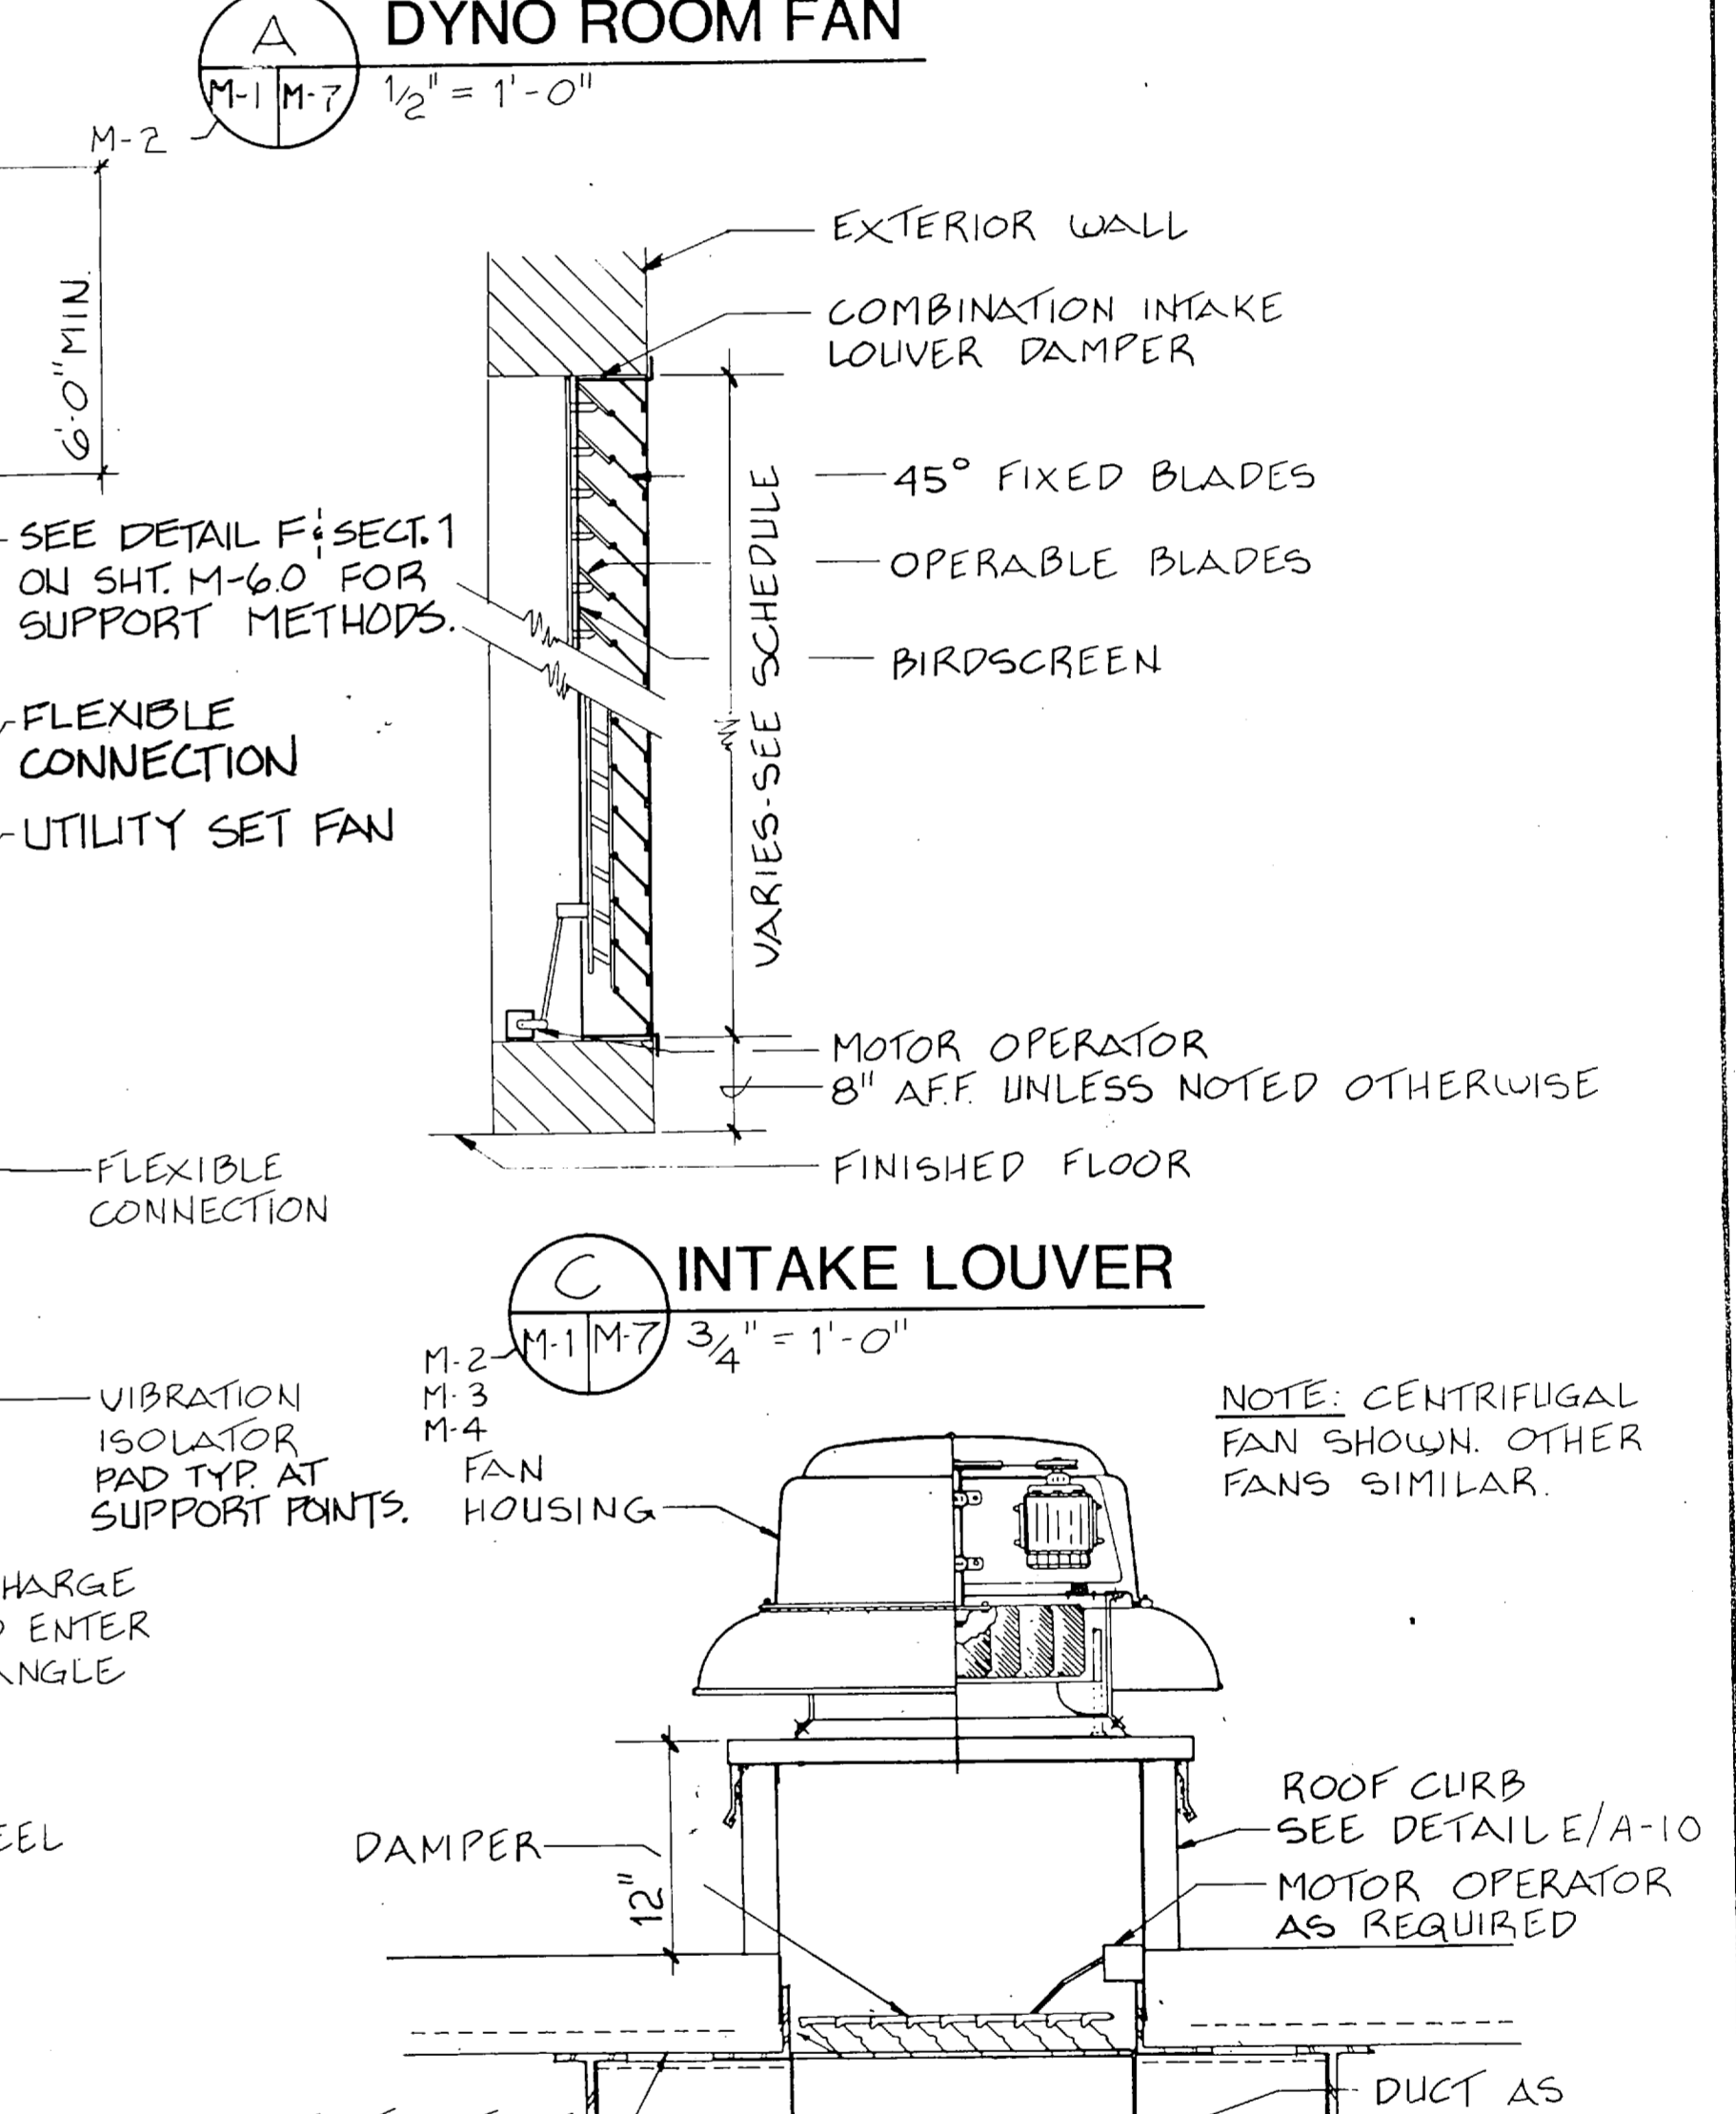 A
DYNO ROOM FAN
M-1 M-7
1/2" = 1'-0"
M-2
6'-0" MIN.
EXTERIOR WALL
COMBINATION INTAKE
LOUVER DAMPER
45° FIXED BLADES
OPERABLE BLADES
BIRDSCREEN
VARIES-SEE SCHEDULE
SEE DETAIL F & SECT. 1
ON SHT. M-6.0 FOR
SUPPORT METHODS.
FLEXIBLE
CONNECTION
UTILITY SET FAN
MOTOR OPERATOR
8" A.F.F. UNLESS NOTED OTHERWISE
FINISHED FLOOR
FLEXIBLE
CONNECTION
C
INTAKE LOUVER
M-1 M-7
3/4" = 1'-0"
M-2
M-3
M-4
VIBRATION
ISOLATOR
PAD TYP. AT
SUPPORT POINTS.
FAN
HOUSING
NOTE: CENTRIFUGAL
FAN SHOWN. OTHER
FANS SIMILAR.
HARGE
ENTER
ANGLE
EEL
DAMPER
12"
ROOF CURB
SEE DETAIL E/A-10
MOTOR OPERATOR
AS REQUIRED
DUCT AS